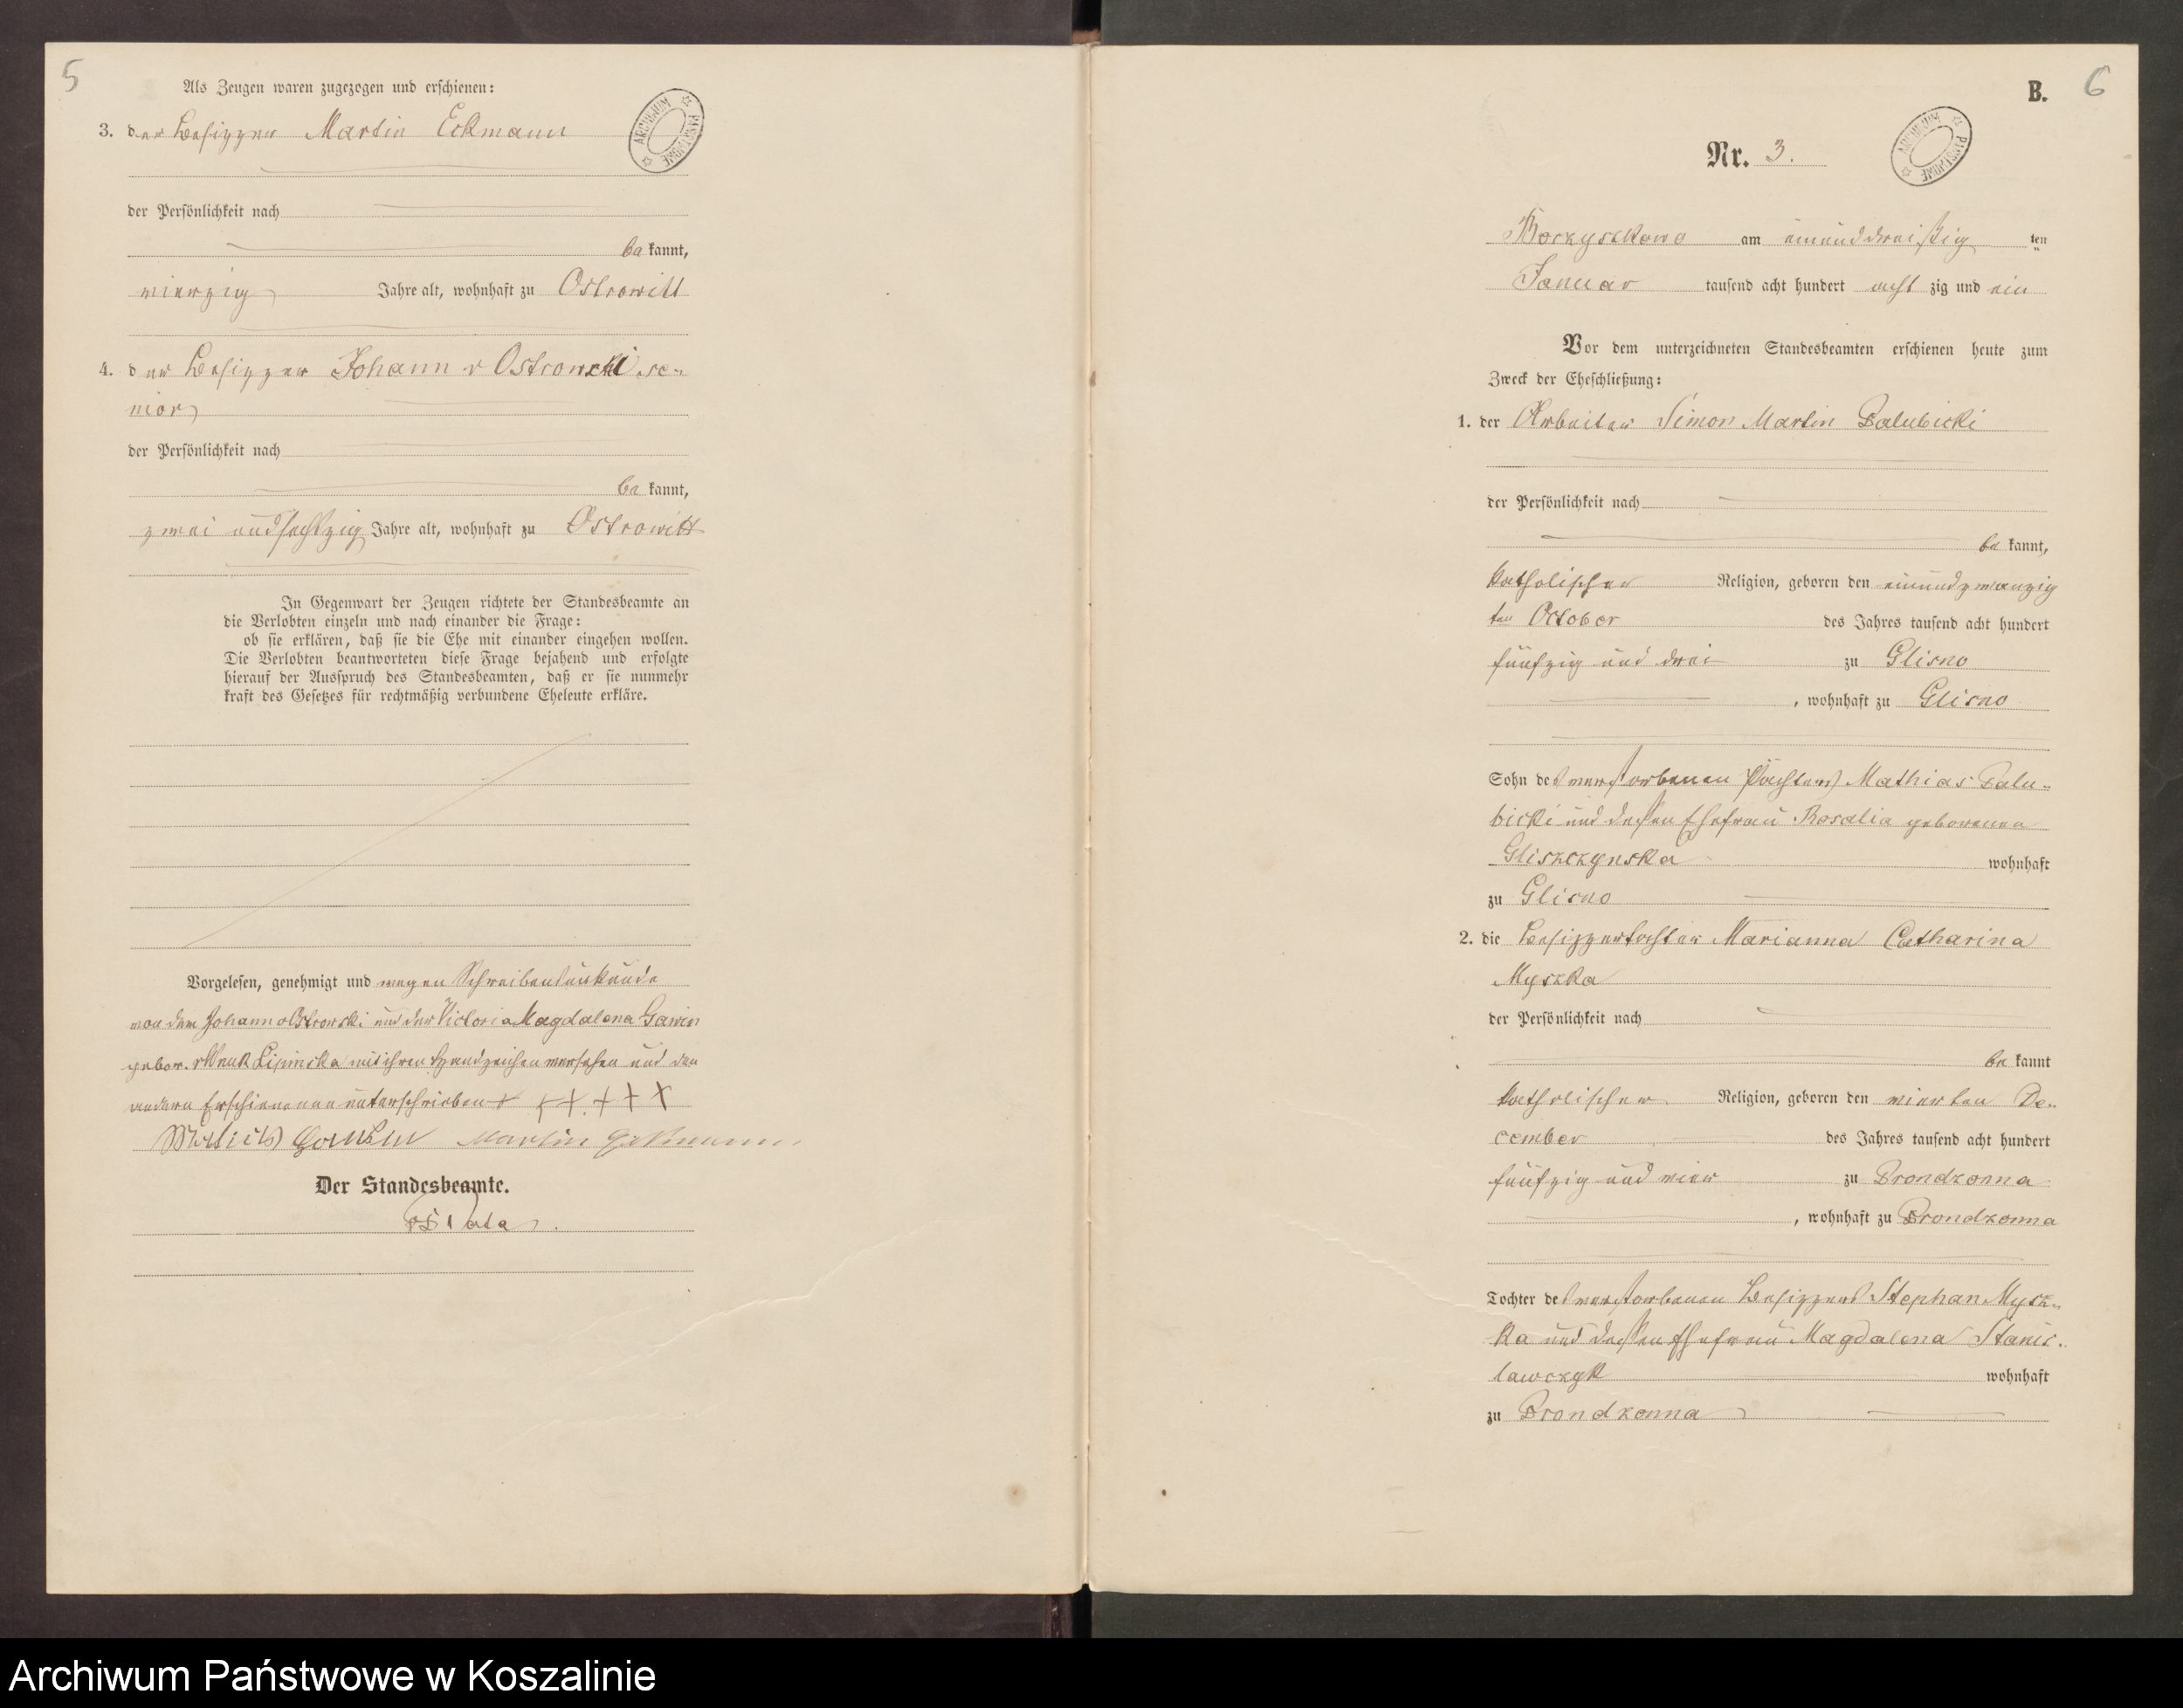 5
Als Zeugen waren zugezogen und erschienen:
3. der Besitzer Martin Eckmann
ARCHIWUM PAŃSTWOWE
der Persönlichkeit nach
be kannt,
vierzig Jahre alt, wohnhaft zu Ostrowitt
4. der Besitzer Johann v Ostrowski se-
nior
der Persönlichkeit nach
be kannt,
zwei und sechszig Jahre alt, wohnhaft zu Ostrowitt
In Gegenwart der Zeugen richtete der Standesbeamte an
die Verlobten einzeln und nach einander die Frage:
ob sie erklären, daß sie die Ehe mit einander eingehen wollen.
Die Verlobten beantworteten diese Frage bejahend und erfolgte
hierauf der Ausspruch des Standesbeamten, daß er sie nunmehr
kraft des Gesetzes für rechtmäßig verbundene Eheleute erkläre.
Vorgelesen, genehmigt und wegen Schreibensunkunde
von dem Johann v Ostrowski und der Victoria Magdalena Gawin
gebor. Lipinska mit ihren Handzeichen versehen und den
andern Erschienenen unterschrieben + + + + + +
Martin Eckmann
Der Standesbeamte.
B. 6
Nr. 3.
ARCHIWUM PAŃSTWOWE
Borzyszkowo am einunddreißig ten
Januar tausend acht hundert acht zig und ein
Vor dem unterzeichneten Standesbeamten erschienen heute zum
Zweck der Eheschließung:
1. der Arbeiter Simon Martin Palubicki
der Persönlichkeit nach
be kannt,
katholischer Religion, geboren den einundzwanzig
ten October des Jahres tausend acht hundert
fünfzig und drei zu Glisno
, wohnhaft zu Glisno
Sohn des verstorbenen Pächters Mathias Palu-
bicki und dessen Ehefrau Rosalia geborenen
Gliszczynska wohnhaft
zu Glisno
2. die Besitzertochter Marianna Catharina
Myszka
der Persönlichkeit nach
be kannt
katholischer Religion, geboren den vierten De-
cember des Jahres tausend acht hundert
fünfzig und vier zu Prondzonna
, wohnhaft zu Prondzonna
Tochter des verstorbenen Besitzers Stephan Mysz-
ka und dessen Ehefrau Magdalena Stanis-
lawczyk wohnhaft
zu Prondzonna
Archiwum Państwowe w Koszalinie